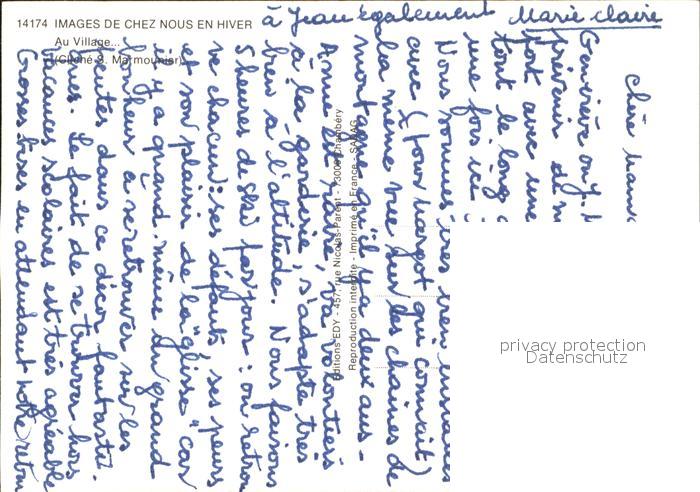 14174 IMAGES DE CHEZ NOUS EN HIVER
Au Village...
(Cliché S. Marmounier)
à Jean également Marie Claire
Chère
Geneviève ou J.
prévenir
font avec une
tout le long
une fois ici
Nous sommes très
avec X (tous Margot qui connait)
la même vue sur les chaînes de
montagne qu'il y a deux ans.
Anne Laure, va volontiers
à la garderie, s'adapte très
bien à l'altitude. Nous faisons
5 heures de ski par jour : on retrou
ve chacun : ses défauts ses peurs
et son plaisir de la "glisse" car
il y a quand même un grand
bonheur à se retrouver sur les
pistes dans ce décor fantasti-
ques. Le fait de se trouver hors
vacances scolaires est très agréable
Grosses bises en attendant notre retour
Editions EDY - 457, rue Nicolas-Parent - 73000 Chambéry
Reproduction interdite - Imprimé en France - SADAG
privacy protection
Datenschutz